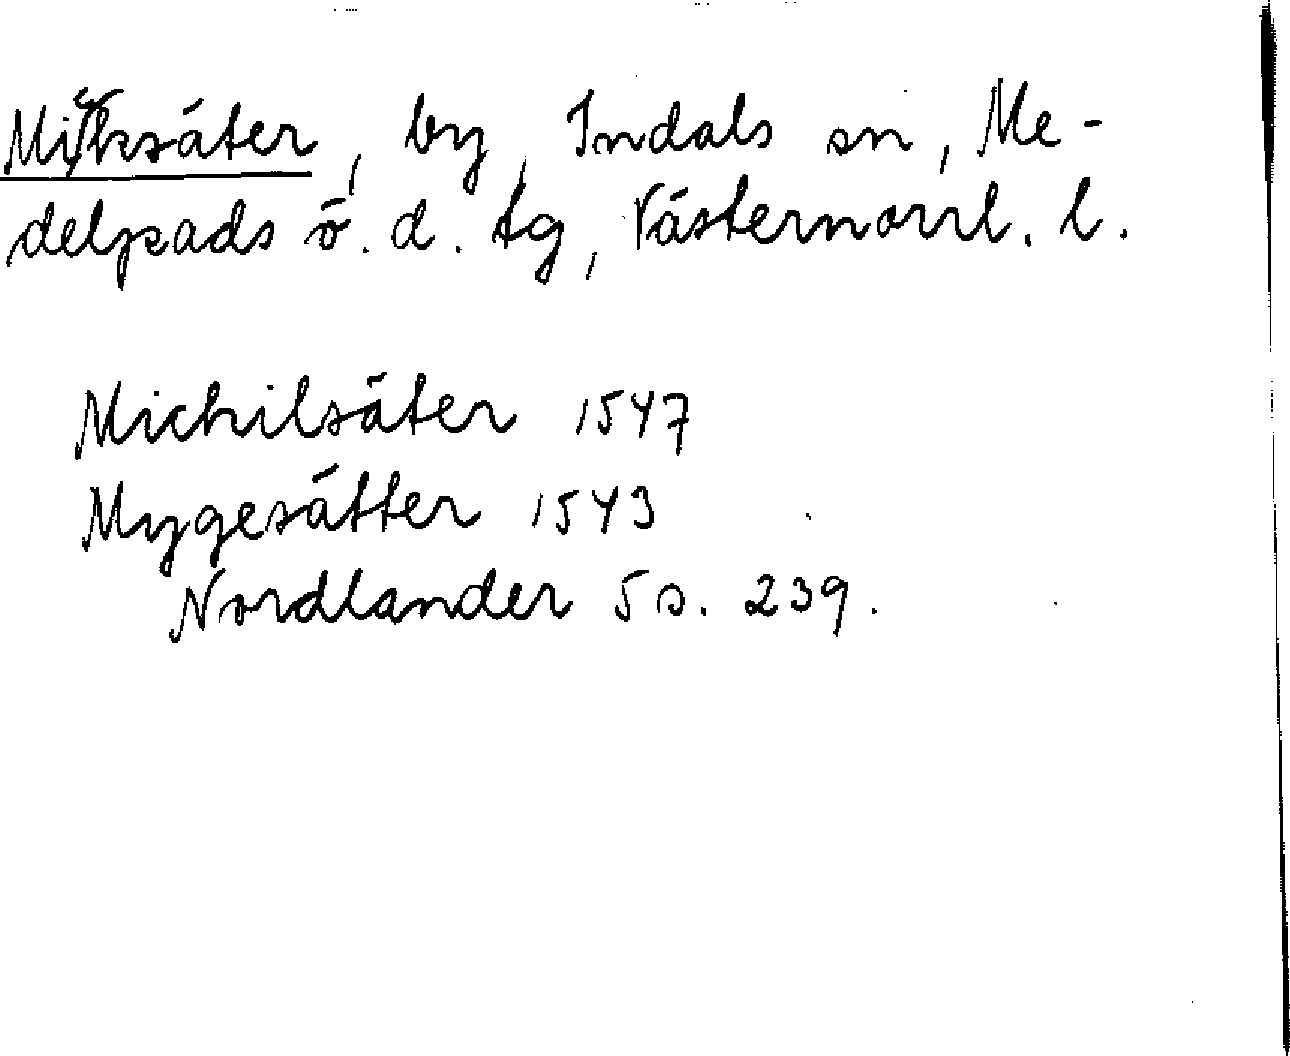 Micksäter, by, Indals sn, Me-
delpads ö. d. tg, Västernorrl. l.
Michilsäter 1547
Mygesätter 1543
Nordlander 5 s. 239.